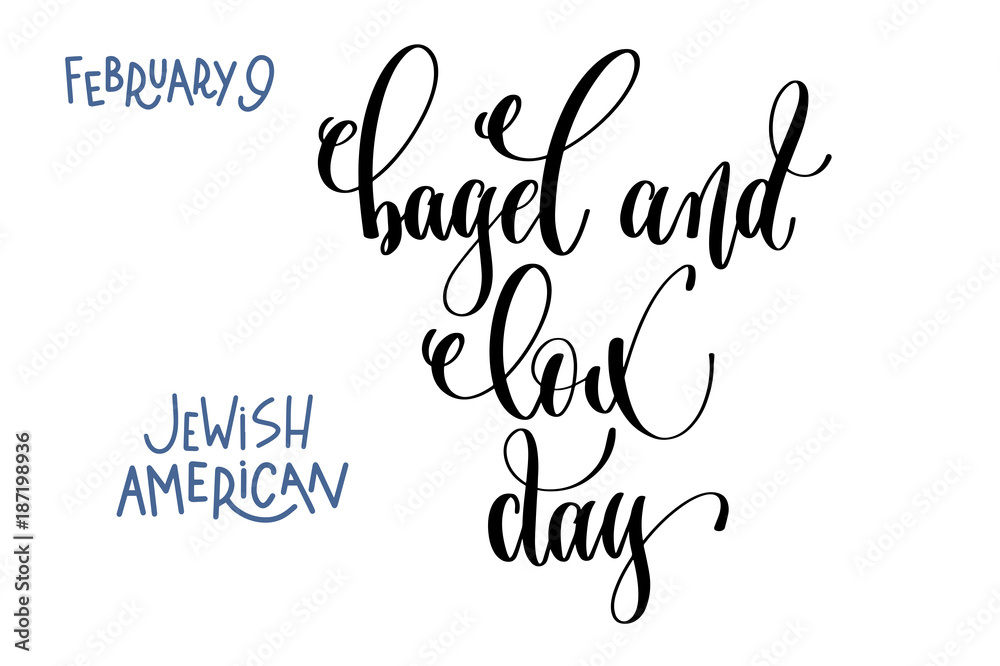 FEBRUARY 9
bagel and
lox
day
JEWISH
AMERICAN
Adobe Stock | #187198936